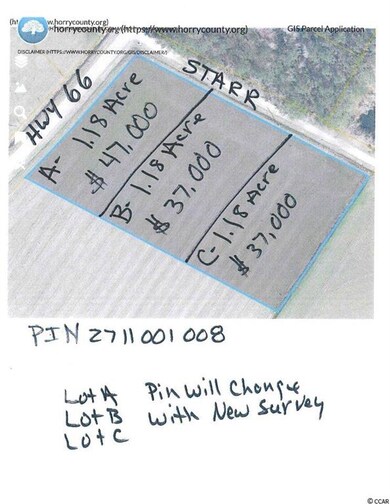 horrycounty.org (https://www.horrycounty.org)
GIS Parcel Application
DISCLAIMER (HTTPS://WWW.HORRYCOUNTY.ORG/GIS/DISCLAIMER/)
HWY 66
STARR
A- 1.18 Acre
$ 47,000
B- 1.18 Acre
$ 37,000
C- 1.18 Acre
$ 37,000
PIN 2711001008
Lot A Pin Will Change
Lot B With New Survey
Lot C
© CCAR